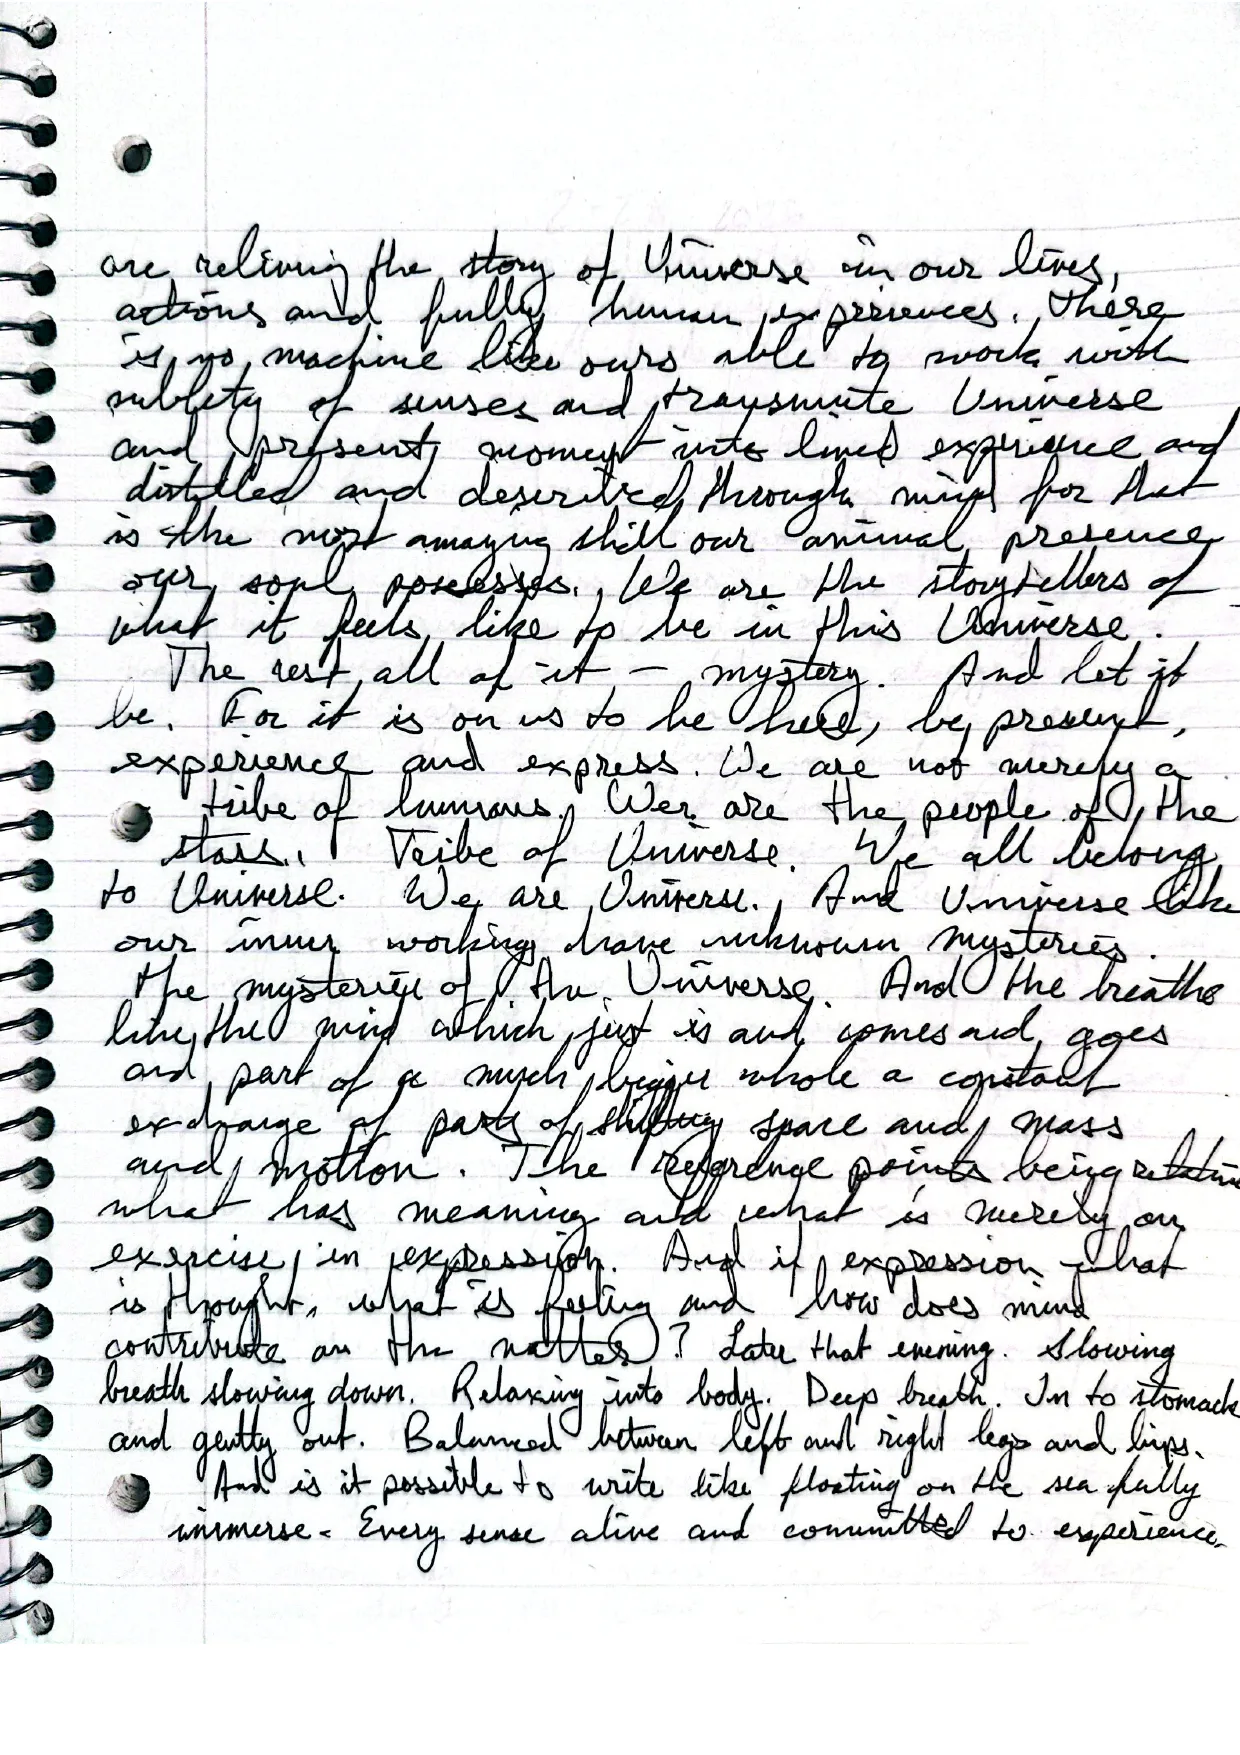 are reliving the story of Universe in our lives,
actions and fully human experiences. There
is no machine like ours able to work with
subtlety of senses and transmute Universe
and present moment into lived experience and
distilled and described through mind for that
is the most amazing skill our animal presence
our soul possesses. We are the storytellers of
what it feels like to be in this Universe.
The rest all of it - mystery. And let it
be. For it is on us to be here, be present,
experience and express. We are not merely a
tribe of humans. We are the people of the
stars. Tribe of Universe. We all belong
to Universe. We are Universe. And Universe like
our inner working have unknown mysteries.
The mysteries of the Universe. And the breathe
like the mind which just is and comes and goes
and part of a much bigger whole a constant
exchange of parts of shifting space and mass
and motion. The reference points being relative
what has meaning and what is merely an
exercise in expression. And if expression what
is thought, what is feeling and how does mind
contribute on the matter? Later that evening. Slowing
breath slowing down. Relaxing into body. Deep breath. In to stomach
and gently out. Balanced between left and right legs and hips.
And is it possible to write like floating on the sea fully
immerse. Every sense alive and committed to experience.